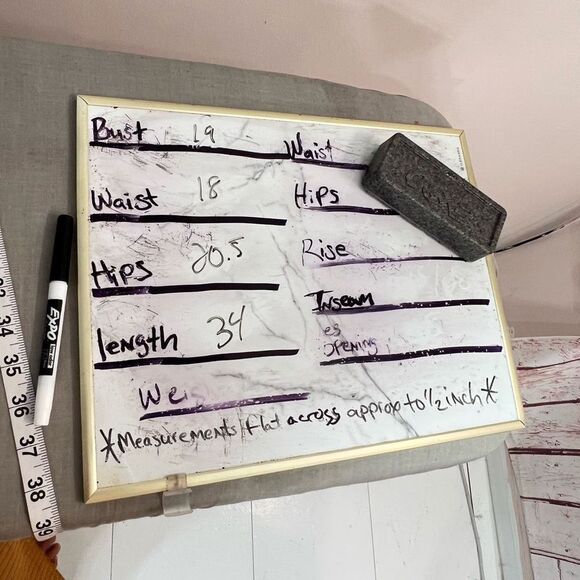 Bust 19
Waist 18
Hips 20.5
length 34
Wei
Waist
Hips
Rise
Inseam
es
opening
*Measurements flat across approx to 1/2 inch*
EXPO
34
35
36
37
38
39